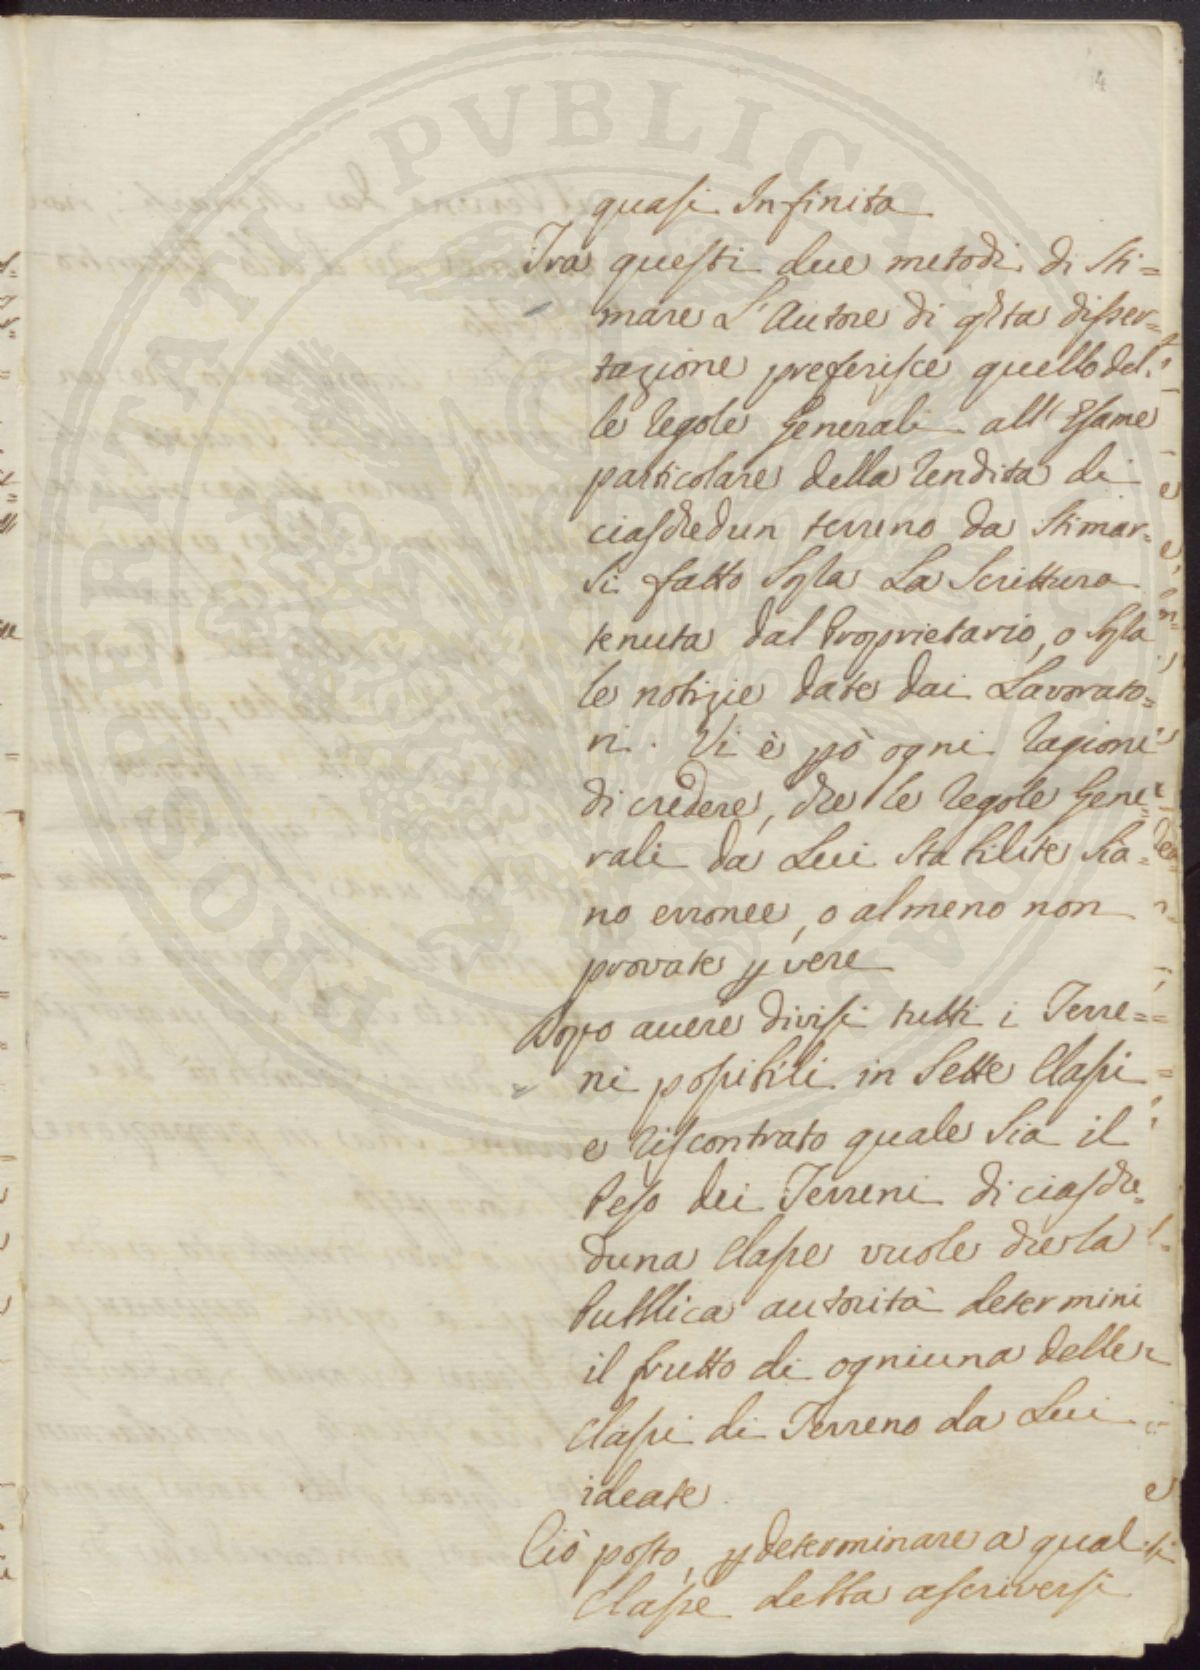 4
quasi Infinita
Tra questi due metodi di sti=
mare L'Autore di qsta disser=
tazione preferisce quello del=
le regole generali all'Esame
particolare della rendita di
ciaschedun terreno da stimar=
si fatto sopra La Scrittura
tenuta dal Proprietario, o sopra
le notizie date dai Lavorato=
ri. Vi è pò ogni ragione
di credere, che le regole gene=
rali da Lui stabilite sia=
no erronee, o almeno non
provate p vere
Dopo avere divisi tutti i Terre=
ni possibili in sette Classi
e riscontrato quale sia il
Peso dei Terreni di ciasche=
duna Classe vuole che la
Pubblica autorità determini
il frutto di ogniuna delle
Classi di Terreno da Lui
ideate
Ciò posto, p determinare a qual
Classe debba ascriversi
PROSPERITATI PVBLICAE